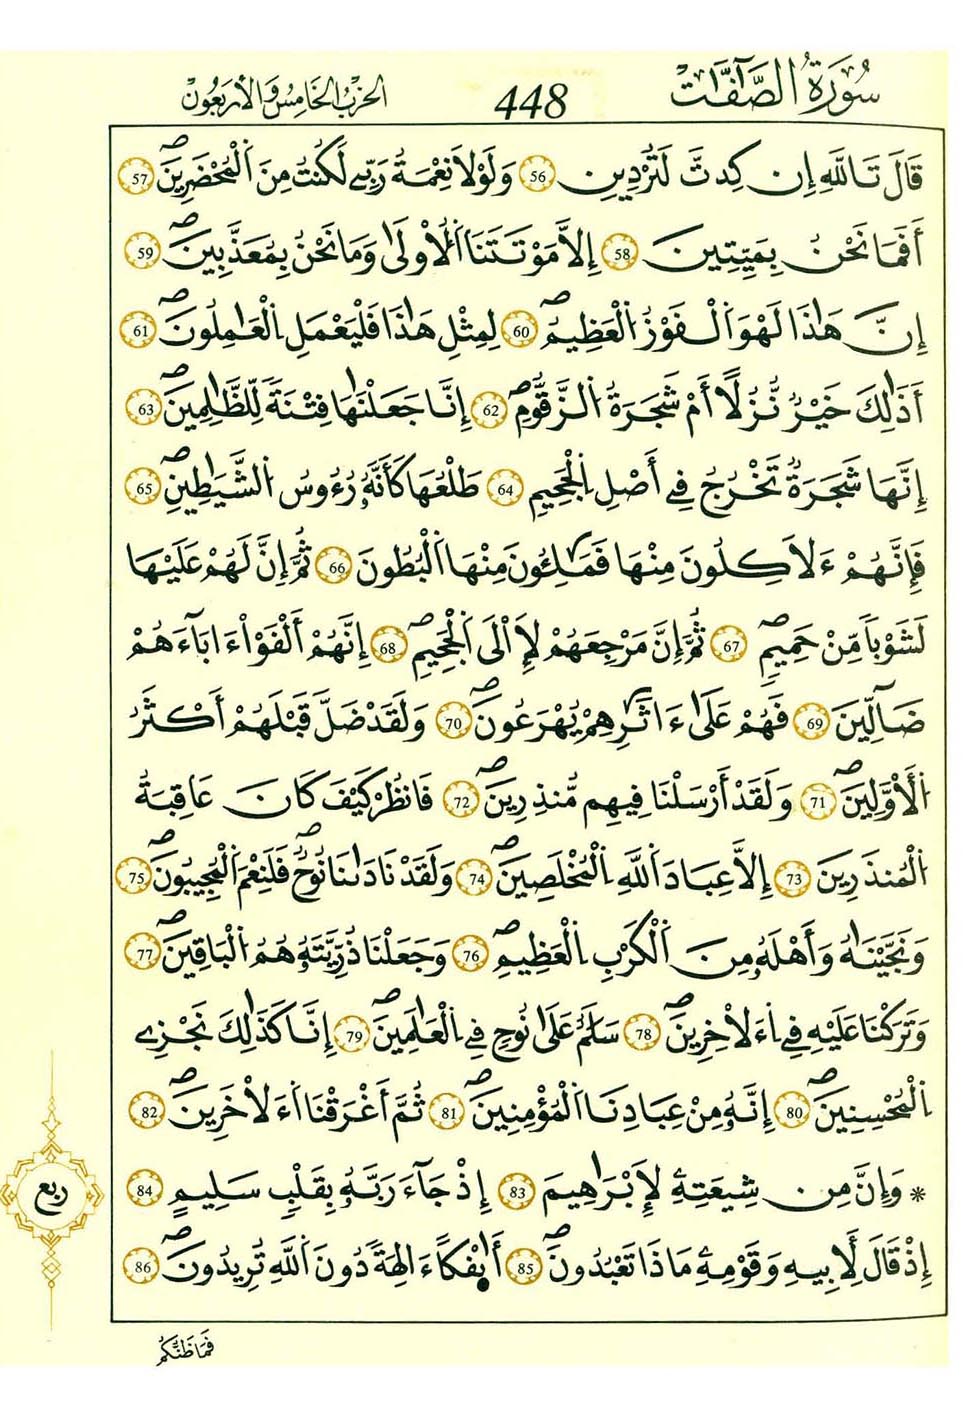 سُورَةُ الصَّآفَّاتِ 448 الحزب الخامس والأربعون
قَالَ تَاللَّهِ إِن كِدتَّ لَتُرْدِينِ 56 وَلَوْلَا نِعْمَةُ رَبِّي لَكُنتُ مِنَ اَلْمُحْضَرِينَ صـ 57
أَفَمَا نَحْنُ بِمَيِّتِينَ 58 إِلَّا مَوْتَتَنَا اَلْأُولَىٰ وَمَا نَحْنُ بِمُعَذَّبِينَ صـ 59
إِنَّ هَٰذَا لَهْوَ اَلْفَوْزُ اُلْعَظِيمُ صـ 60 لِمِثْلِ هَٰذَا فَلْيَعْمَلِ اِلْعَٰمِلُونَ صـ 61
أَذَٰلِكَ خَيْرٌ نُّزُلًا أَمْ شَجَرَةُ اُلزَّقُّومِ صـ 62 إِنَّا جَعَلْنَٰهَا فِتْنَةً لِّلظَّٰلِمِينَ صـ 63
إِنَّهَا شَجَرَةٌ تَخْرُجُ فِي أَصْلِ اِلْجَحِيمِ 64 طَلْعُهَا كَأَنَّهُۥ رُءُوسُ اُلشَّيَٰطِينِ صـ 65
فَإِنَّهُمْ ءَلَاكِلُونَ مِنْهَا فَمَالِـُٔونَ مِنْهَا اَلْبُطُونَ 66 ثُمَّ إِنَّ لَهُمْ عَلَيْهَا
لَشَوْبًا مِّنْ حَمِيمٍ صـ 67 ثُمَّ إِنَّ مَرْجِعَهُمْ لَإِلَى اَلْجَحِيمِ صـ 68 إِنَّهُمْ أَلْفَوْاْ ءَابَآءَهُمْ
ضَآلِّينَ 69 فَهُمْ عَلَىٰ ءَاثَٰرِهِمْ يُهْرَعُونَ صـ 70 وَلَقَدْ ضَلَّ قَبْلَهُمْ أَكْثَرُ
اُلْأَوَّلِينَ صـ 71 وَلَقَدْ أَرْسَلْنَا فِيهِم مُّنذِرِينَ صـ 72 فَانظُرْ كَيْفَ كَانَ عَاقِبَةُ
اُلْمُنذَرِينَ 73 إِلَّا عِبَادَ اَللَّهِ اِلْمُخْلَصِينَ صـ 74 وَلَقَدْ نَادَىٰنَا نُوحٌ صـ فَلَنِعْمَ اَلْمُجِيبُونَ صـ 75
وَنَجَّيْنَٰهُ وَأَهْلَهُۥ مِنَ اَلْكَرْبِ اِلْعَظِيمِ صـ 76 وَجَعَلْنَا ذُرِّيَّتَهُۥ هُمُ اُلْبَاقِينَ صـ 77
وَتَرَكْنَا عَلَيْهِ فِي اِءَلَاخِرِينَ صـ 78 سَلَٰمٌ عَلَىٰ نُوحٍ فِي اِلْعَٰلَمِينَ صـ 79 إِنَّا كَذَٰلِكَ نَجْزِي
اِلْمُحْسِنِينَ صـ 80 إِنَّهُۥ مِنْ عِبَادِنَا اَلْمُؤْمِنِينَ صـ 81 ثُمَّ أَغْرَقْنَا اَءَلَاخَرِينَ صـ 82
* وَإِنَّ مِن شِيعَتِهِۦ لَإِبْرَٰهِيمَ 83 إِذْ جَآءَ رَبَّهُۥ بِقَلْبٍ سَلِيمٍ 84
إِذْ قَالَ لِأَبِيهِ وَقَوْمِهِۦ مَاذَا تَعْبُدُونَ صـ 85 أَئِفْكًا ءَالِهَةً دُونَ اَللَّهِ تُرِيدُونَ صـ 86
ربع
فَمَا ظَنُّكُم